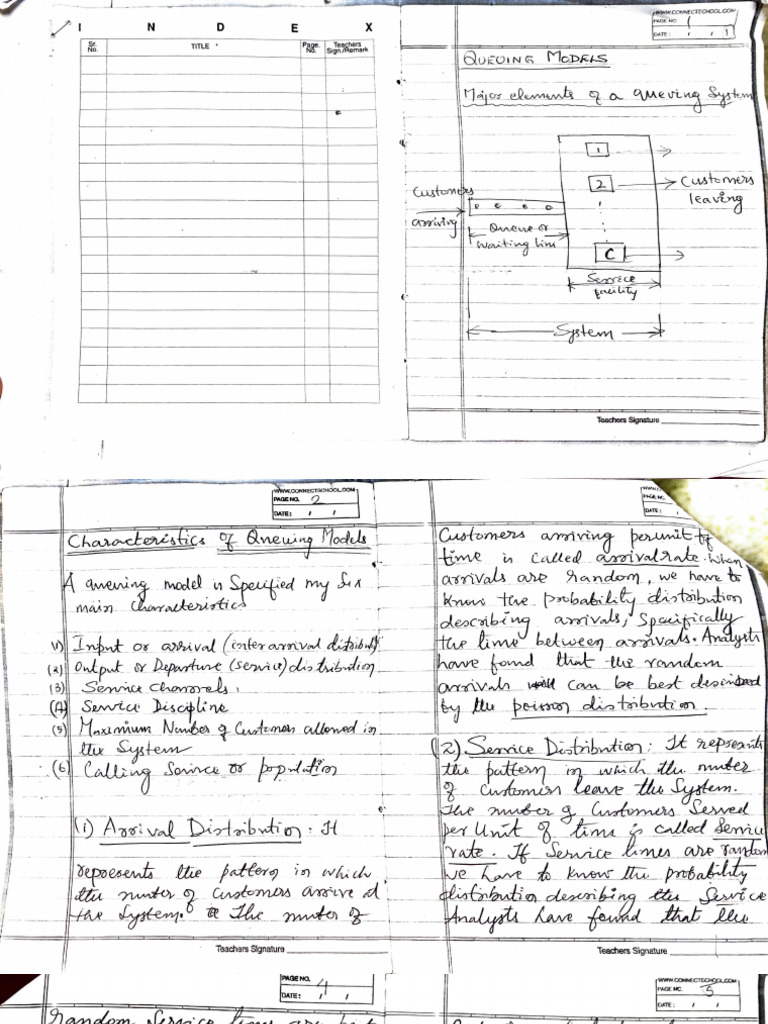 I N D E X
Sr. No.
TITLE
Page. No.
Teachers Sign./Remark
WWW.CONNECTSCHOOL.COM
PAGE NO. 1
DATE: / / 1
QUEUING MODELS
Major elements of a queuing System
1
2
Customers arriving
Customers leaving
Queue or
waiting line
C
Service
facility
System
Teachers Signature
WWW.CONNECTSCHOOL.COM
PAGE NO. 2
DATE: / /
Characteristics of Queuing Models
A queuing model is Specified my Six
main characteristics
(1) Input or arrival (inter arrival distributi
(2) Output or Departure (service) distribution
(3) Service Channels.
(4) Service Discipline
(5) Maximum Number of Customers allowed in
the System
(6) Calling Source or population
(1) Arrival Distribution : It
represents the pattern in which
the number of customers arrive at
the System. The number of
Teachers Signature
PAGE NO.
DATE: /
Customers arriving per unit of
time is called arrival rate. When
arrivals are random, we have to
know the probability distribution
describing arrivals, Specifically
the time between arrivals. Analysts
have found that the random
arrivals can be best described
by the poisson distribution.
(2) Service Distribution : It represents
the pattern in which the number
of customers leave the System.
The number of Customers Served
per Unit of time is called Service
rate. If Service times are random
we have to know the probability
distribution describing the Service
Analysts have found that the
Teachers Signature
PAGE NO. 4
DATE: / /
WWW.CONNECTSCHOOL.COM
PAGE NO. 5
DATE: / /
random Service times are best